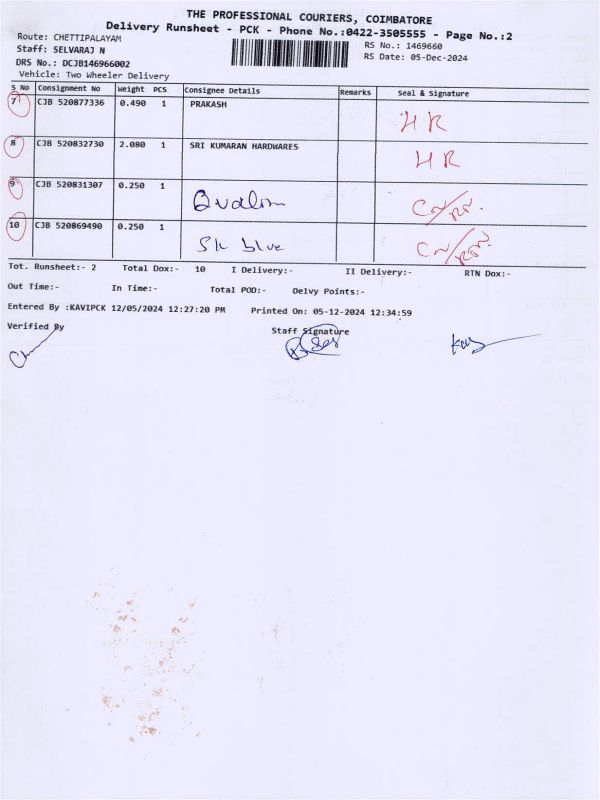 THE PROFESSIONAL COURIERS, COIMBATORE
Delivery Runsheet - PCK - Phone No.:0422-3505555 - Page No.:2
Route: CHETTIPALAYAM
RS No.: 1469660
Staff: SELVARAJ N
RS Date: 05-Dec-2024
DRS No.: DCJB146966002
Vehicle: Two Wheeler Delivery
S No Consignment No Weight PCS Consignee Details Remarks Seal & Signature
7 CJB 520877336 0.490 1 PRAKASH
HR
8 CJB 520832730 2.080 1 SRI KUMARAN HARDWARES
HR
9 CJB 520831307 0.250 1
10 CJB 520869490 0.250 1
blue
Tot. Runsheet:- 2 Total Dox:- 10 I Delivery:- II Delivery:- RTN Dox:-
Out Time:- In Time:- Total POD:- Delvy Points:-
Entered By :KAVIPCK 12/05/2024 12:27:20 PM Printed On: 05-12-2024 12:34:59
Verified By Staff Signature